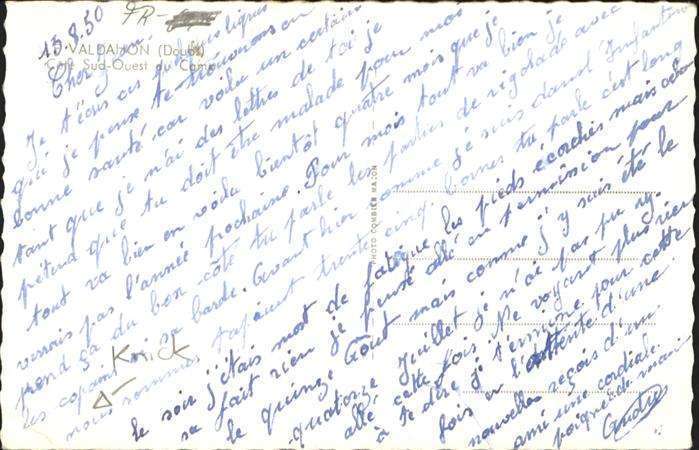 13.8.50
FR-
VALDAHON (Doubs)
Côté Sud-Ouest du Camp
Cher
Je t'écris ces quelques lignes
qui je pense te trouverons en
bonne santé car voila un certain
tant que je n'ai des lettres de toi je
pretend que tu doit être malade pour moi
tout va bien en voila bientôt quatre mois que je
verrais pas l'année prochaine. Pour mois tout va bien je
prend sa du bon côté tu parle les parties de rigolade avec
les copains sa barde. Avant hier comme je suis dans l'infanterie
nous sommes trente cinq bornes tu parle c'est long
le soir j'étais mort de fatigue les pieds écorchés mais cela
sa fait rien je pense allé en permission pour
le quinze Août mais comme j'y suis été le
quatorze Juillet je n'ai pas pu y
allé cette fois. Ne voyant plus rien
à te dire je termine pour cette
fois en l'attente d'une
nouvelles reçois d'un
ami une cordiale
poignée de main
André
Knick
PHOTO COMBIER MACON